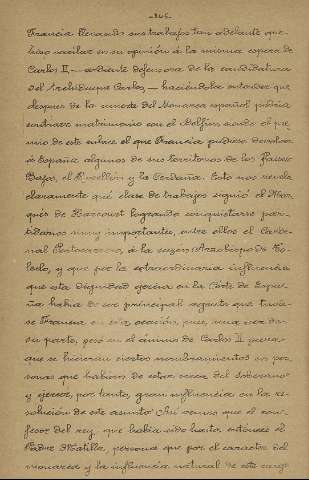 Francia llevando sus trabajos tan adelante que
hizo vacilar en su opinión á la misma esposa de
Carlos II — ardiente defensora de la candidatura
del Archiduque Carlos — haciéndole entender que
despues de la muerte del Monarca español podria
contraer matrimonio con el Delfin siendo el pre-
mio de este enlace el que Francia pudiese devolver
á España algunos de sus territorios de los Paises
Bajos, el Rosellón y la Cerdaña. Esto nos revela
claramente qué clase de trabajos siguió el Mar-
qués de Harcourt logrando conquistarse par-
tidarios muy importantes, entre ellos el Carde-
nal Portocarrero, á la sazón Arzobispo de To-
ledo, y que por la extraordinaria influencia
que esta dignidad ejercia en la Corte de Espa-
ña habia de ser principal agente que tuvie-
se Francia en esta ocasión, pues, una vez de
su parte, pesó en el ánimo de Carlos II para
que se hicieran ciertos nombramientos en per-
sonas que habian de estar cerca del Soberano
y ejercer, por tanto, gran influencia en la re-
solución de este asunto. Asi vemos que el con-
fesor del rey que habia sido hasta entónces el
Padre Matilla, persona que por el caracter del
monarca y la influencia natural de este cargo